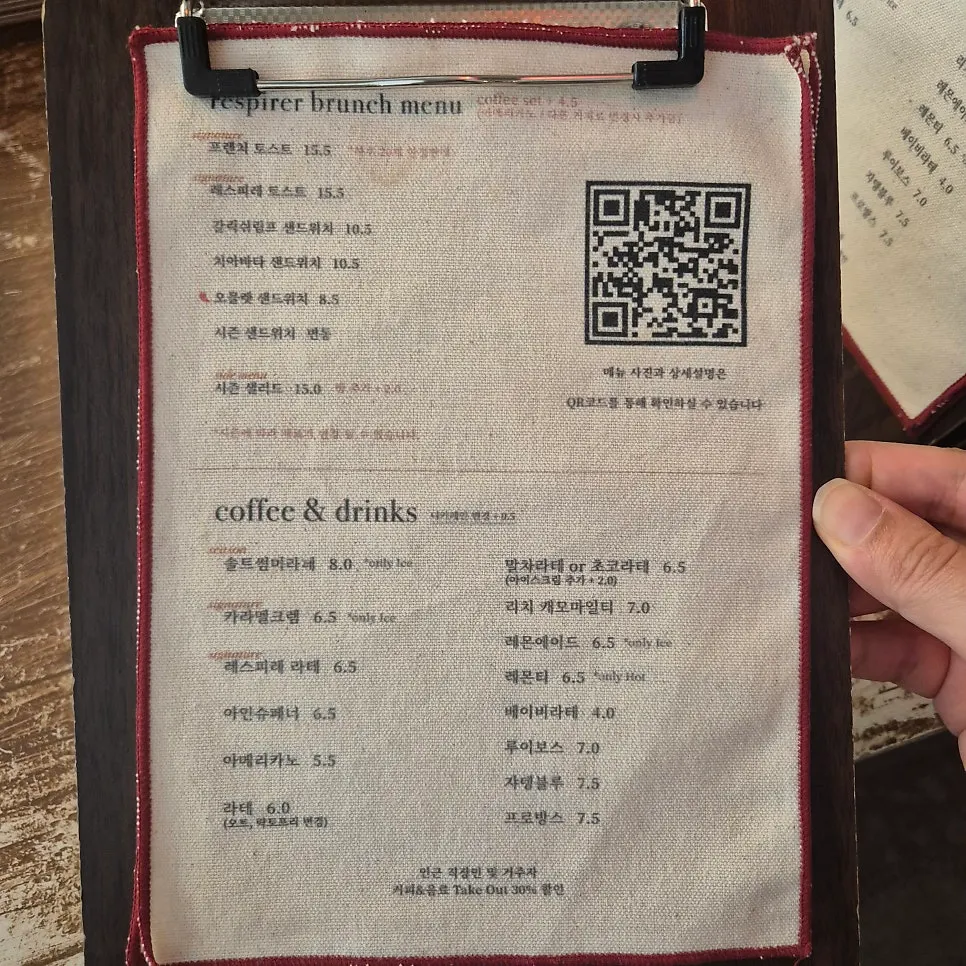 respirer brunch menu coffee set + 4.5
signature
프렌치 토스트 15.5
signature
레스피레 토스트 15.5
갈릭쉬림프 샌드위치 10.5
치아바타 샌드위치 10.5
오믈렛 샌드위치 8.5
시즌 샌드위치 변동
side menu
시즌 샐러드 15.0 빵 추가 + 2.0
메뉴 사진과 상세설명은
QR코드를 통해 확인하실 수 있습니다
coffee & drinks 디카페인 변경 + 0.5
season
솔트썸머라떼 8.0 *only Ice
signature
카라멜크렘 6.5 *only Ice
signature
레스피레 라떼 6.5
아인슈페너 6.5
아메리카노 5.5
라떼 6.0
(오트, 락토프리 변경)
말차라떼 or 초코라떼 6.5
(아이스크림 추가 + 2.0)
리치 캐모마일티 7.0
레몬에이드 6.5 *only Ice
레몬티 6.5 *only Hot
베이비라떼 4.0
루이보스 7.0
쟈뎅블루 7.5
프로방스 7.5
인근 직장인 및 거주자
커피&음료 Take Out 30% 할인
6.5
레몬에이
레몬티 6.5
베이비라떼 4.0
루이보스 7.0
쟈뎅블루 7.5
프로방스 7.5